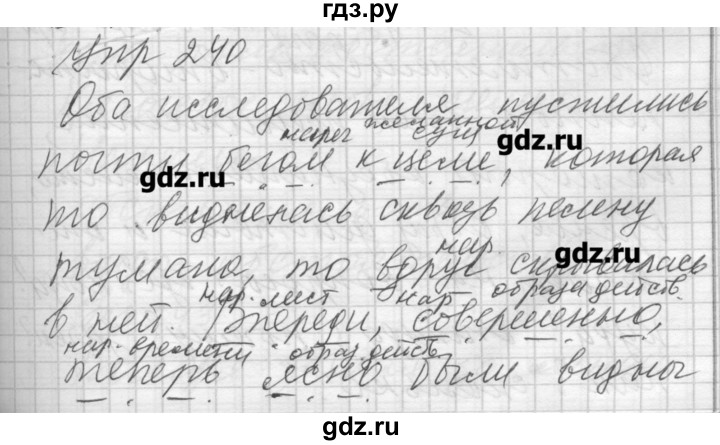 гдз.ру
Упр 240
Оба исследователя пустились
нареч желанной сущ
почти бегом к цели, которая
gdz.ru
gdz.ru
то виднелась сквозь пелену
нар.
тумана, то вдруг скрывалась
gdz.ru
нар. мест нар образа действ.
в ней. Впереди, совершенно,
нар. времени образ. действ.
теперь ясно были видны
gdz.ru